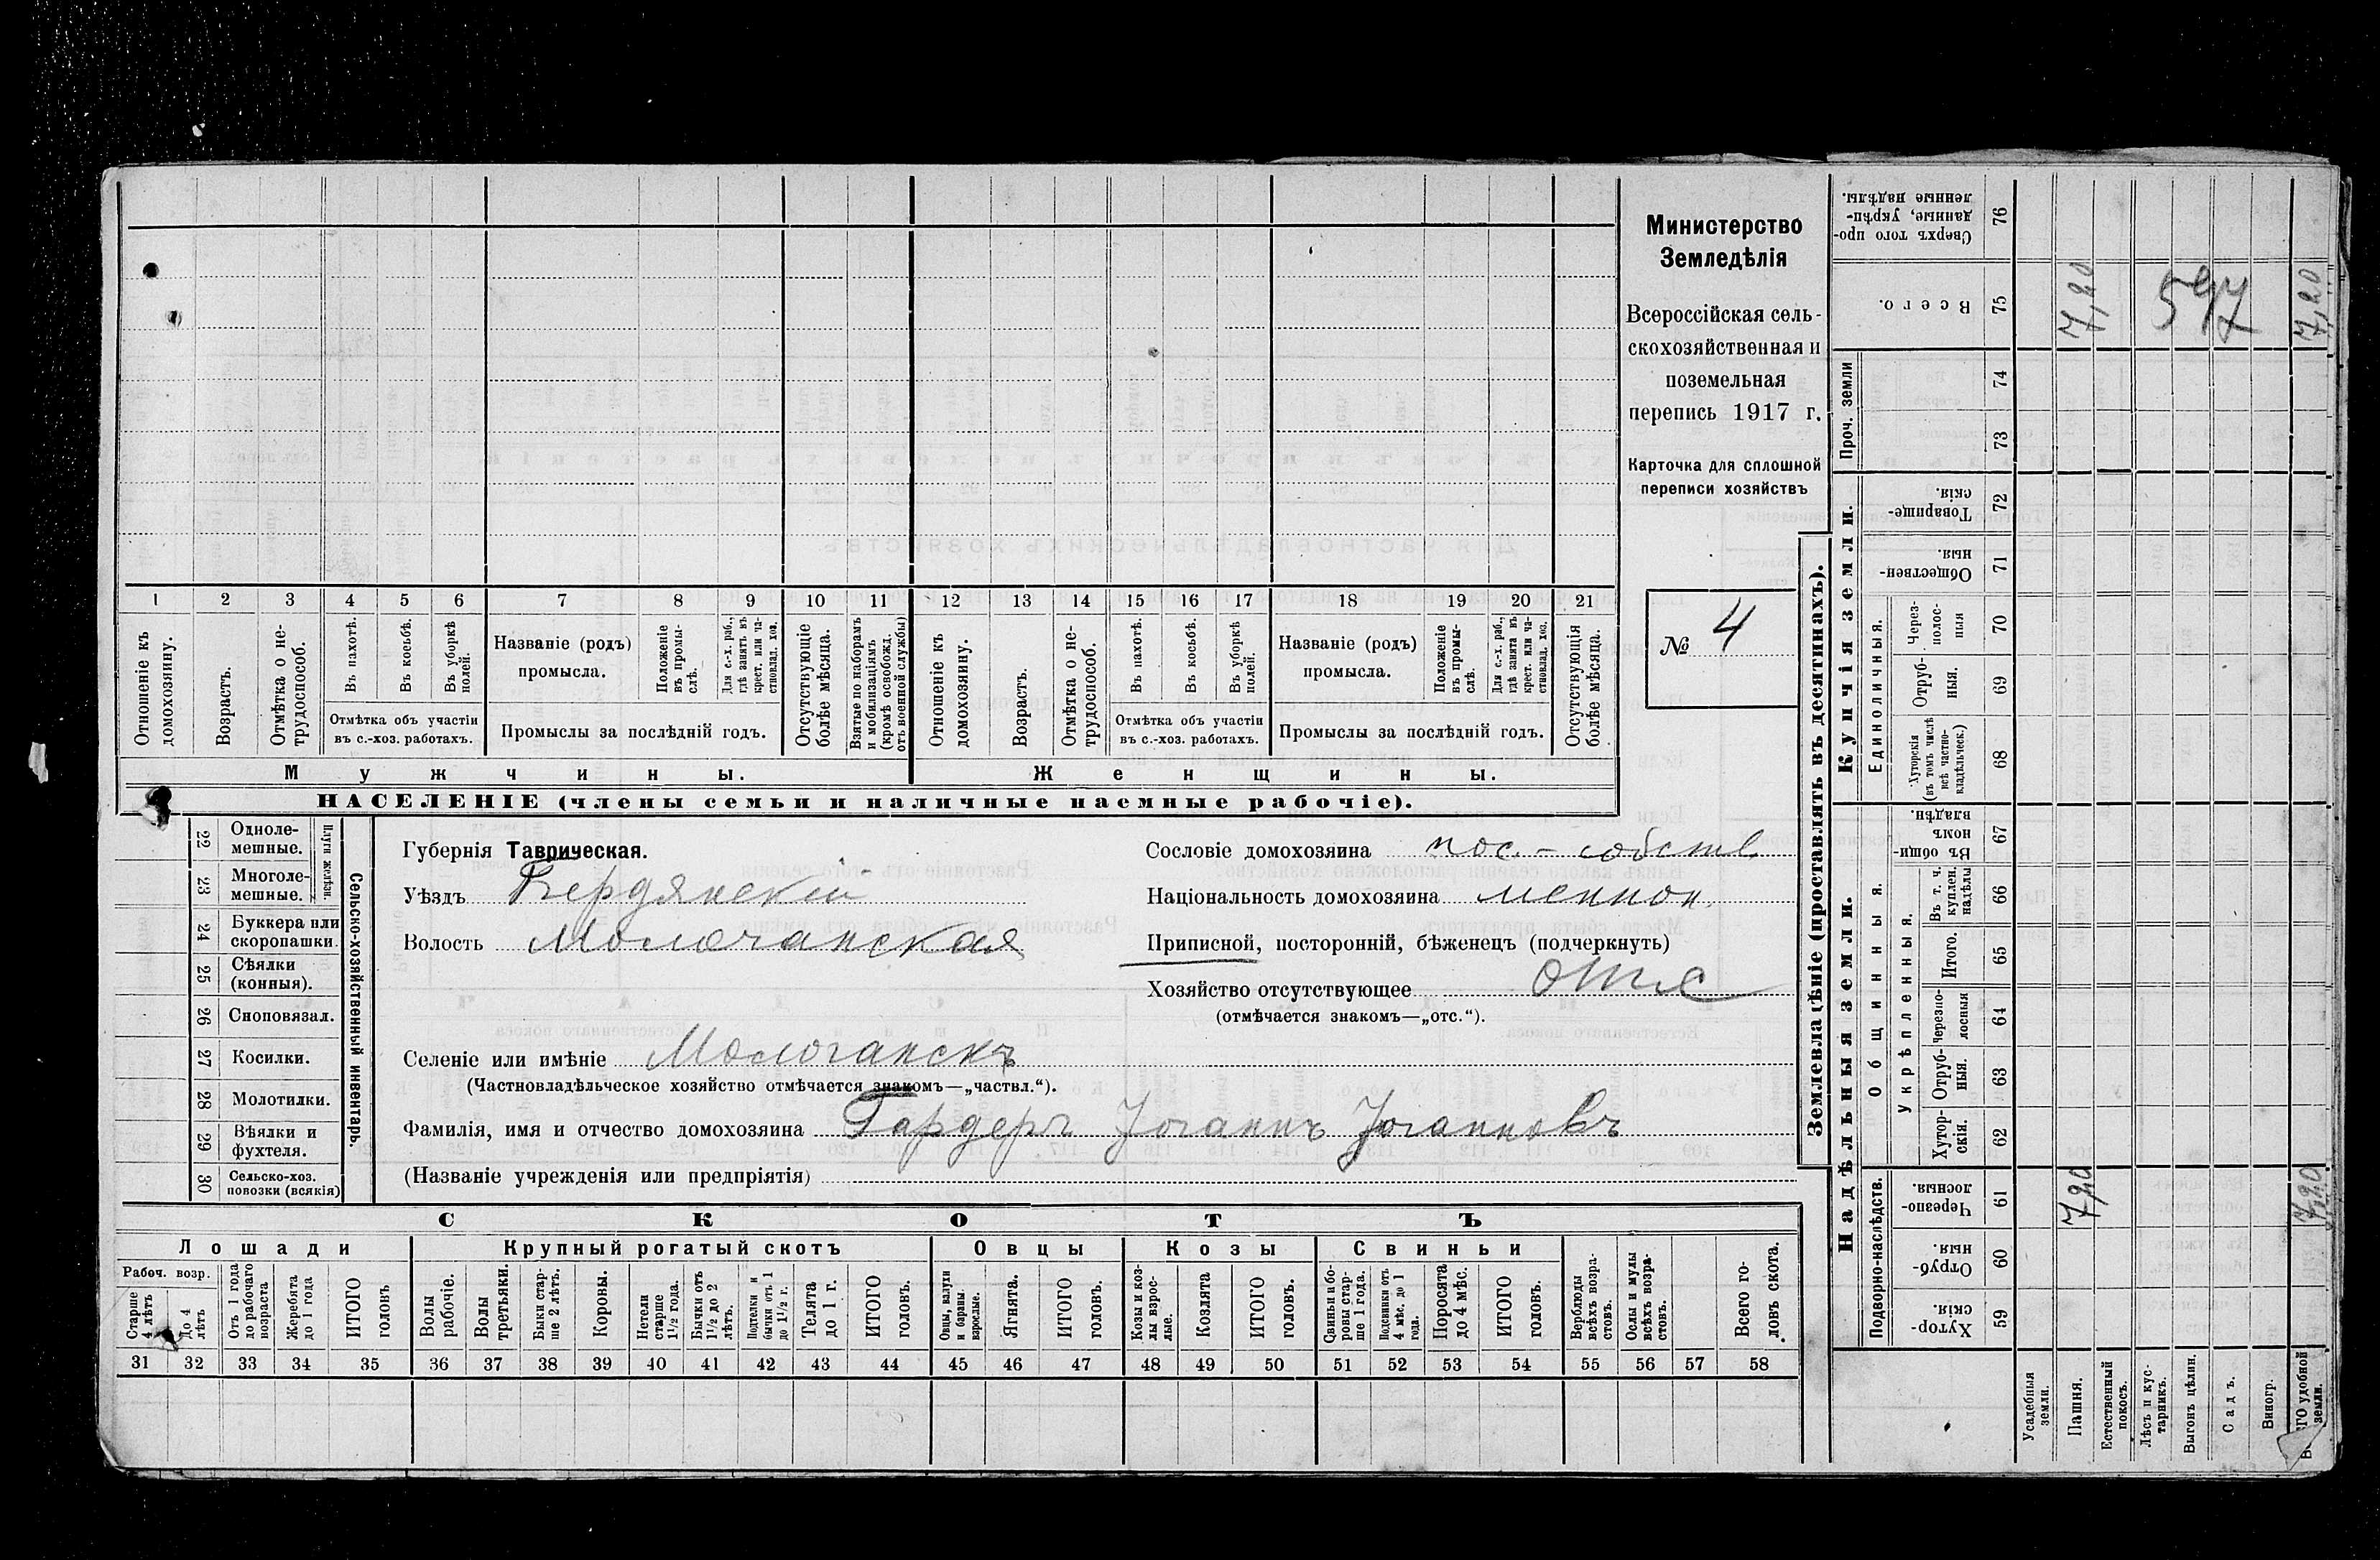 1 2 3 4 5 6 7 8 9 10 11 12 13 14 15 16 17 18 19 20 21
Отношеніе къ домохозяину.
Возрастъ.
Отмѣтка о не-
трудоспособ.
Въ пахотѣ.
Въ косьбѣ.
Въ уборкѣ
полей.
Отмѣтка объ участіи
въ с.-хоз. работахъ.
Названіе (родъ)
промысла.
Положеніе
въ промы-
слѣ.
Для с.-х. раб.,
гдѣ занятъ въ
крест. или ча-
стновлад. хоз.
Промыслы за послѣдній годъ.
Отсутствующіе
болѣе мѣсяца.
Взятые по наборамъ
и мобилизаціямъ
(кромѣ освобожд.
отъ военной службы)
Отношеніе къ
домохозяину.
Возрастъ.
Отмѣтка о не-
трудоспособ.
Въ пахотѣ.
Въ косьбѣ.
Въ уборкѣ
полей.
Отмѣтка объ участіи
въ с.-хоз. работахъ.
Названіе (родъ)
промысла.
Положеніе
въ промы-
слѣ.
Для с.-х. раб.,
гдѣ занята въ
крест. или ча-
стновлад. хоз.
Промыслы за послѣдній годъ.
Отсутствующія
болѣе мѣсяца.
Мужчины.
Женщины.
НАСЕЛЕНІЕ (члены семьи и наличные наемные рабочіе).
Министерство
Земледѣлія
Всероссійская сель-
скохозяйственная и
поземельная
перепись 1917 г.
Карточка для сплошной
переписи хозяйствъ
№ 4
22 Одноле-
мешные.
23 Многоле-
мешные.
Плуги желѣзн.
24 Буккера или
скоропашки.
25 Сѣялки
(конныя).
26 Сноповязал.
27 Косилки.
28 Молотилки.
29 Вѣялки и
фухтеля.
30 Сельско-хоз.
повозки (всякія)
Сельско-хозяйственный инвентарь.
Губернія Таврическая.
Уѣздъ Бердянскій
Волость Молочанская
Сословіе домохозяина пос.-собств
Національность домохозяина меннон.
Приписной, посторонній, бѣженецъ (подчеркнуть)
Хозяйство отсутствующее отс
(отмѣчается знакомъ—„отс.“).
Селеніе или имѣніе Молочанскъ
(Частновладѣльческое хозяйство отмѣчается знакомъ—„частвл.“).
Фамилія, имя и отчество домохозяина Гардеръ Іоганнъ Іоганновъ
(Названіе учрежденія или предпріятія)
СКОТЪ
Лошади
Крупный рогатый скотъ
Овцы
Козы
Свиньи
Рабоч. возр.
Старше
4 лѣтъ
До 4
лѣтъ
Отъ 1 года
до рабочаго
возраста
Жеребята
до 1 года
ИТОГО
головъ
Волы
рабочіе.
Волы
третьяки.
Быки стар-
ше 2 лѣтъ.
Коровы.
Нетели
старше
1½ года.
Бычки отъ
1½ до 2
лѣтъ.
Подтелки и
бычки отъ 1
до 1½ г.
Телята
до 1 г.
ИТОГО
головъ.
Овцы, валухи
и бараны
взрослые.
Ягнята.
ИТОГО
головъ.
Козы и коз-
лы взрос-
лые.
Козлята
ИТОГО
головъ.
Свиньи и бо-
ровы стар-
ше 1 года.
Подсвинки отъ
4 мѣс. до 1
года.
Поросята
до 4 мѣс.
ИТОГО
головъ.
Верблюды
всѣхъ возра-
стовъ.
Ослы и мулы
всѣхъ возра-
стовъ.
Всего го-
ловъ скота.
31 32 33 34 35 36 37 38 39 40 41 42 43 44 45 46 47 48 49 50 51 52 53 54 55 56 57 58
Землевладѣніе (проставлять въ десятинахъ).
Надѣльныя земли.
Купчія земли.
Проч. земли
Подворно-наслѣдств.
Общинныя.
Укрѣпленныя.
Единоличныя.
Сверхъ того про-
данные, укрѣп-
ленные надѣлы.
76
Всего.
75
7,20
597
7,20
74
73
Товарище-
скія.
72
Обществен-
ныя.
71
Через-
полос-
ныя
70
Отруб-
ныя.
69
Хуторскія
(въ томъ числѣ
всѣ частно-
владѣльческ.)
68
Въ общи-
номъ
владѣн.
67
Въ т. ч.
куплен.
надѣлы
66
Итого.
65
Черезпо-
лосныя
64
Отруб-
ныя.
63
Хутор-
скія.
62
Черезпо-
лосныя.
61
7,20
7,20
Отруб-
ныя.
60
Хутор-
скія.
59
Усадебныя
земли.
Пашня.
Естественный
покосъ.
Лѣсъ и кус-
тарникъ.
Выгонъ цѣлин.
Садъ.
Виногр.
ГО удобной
земли.